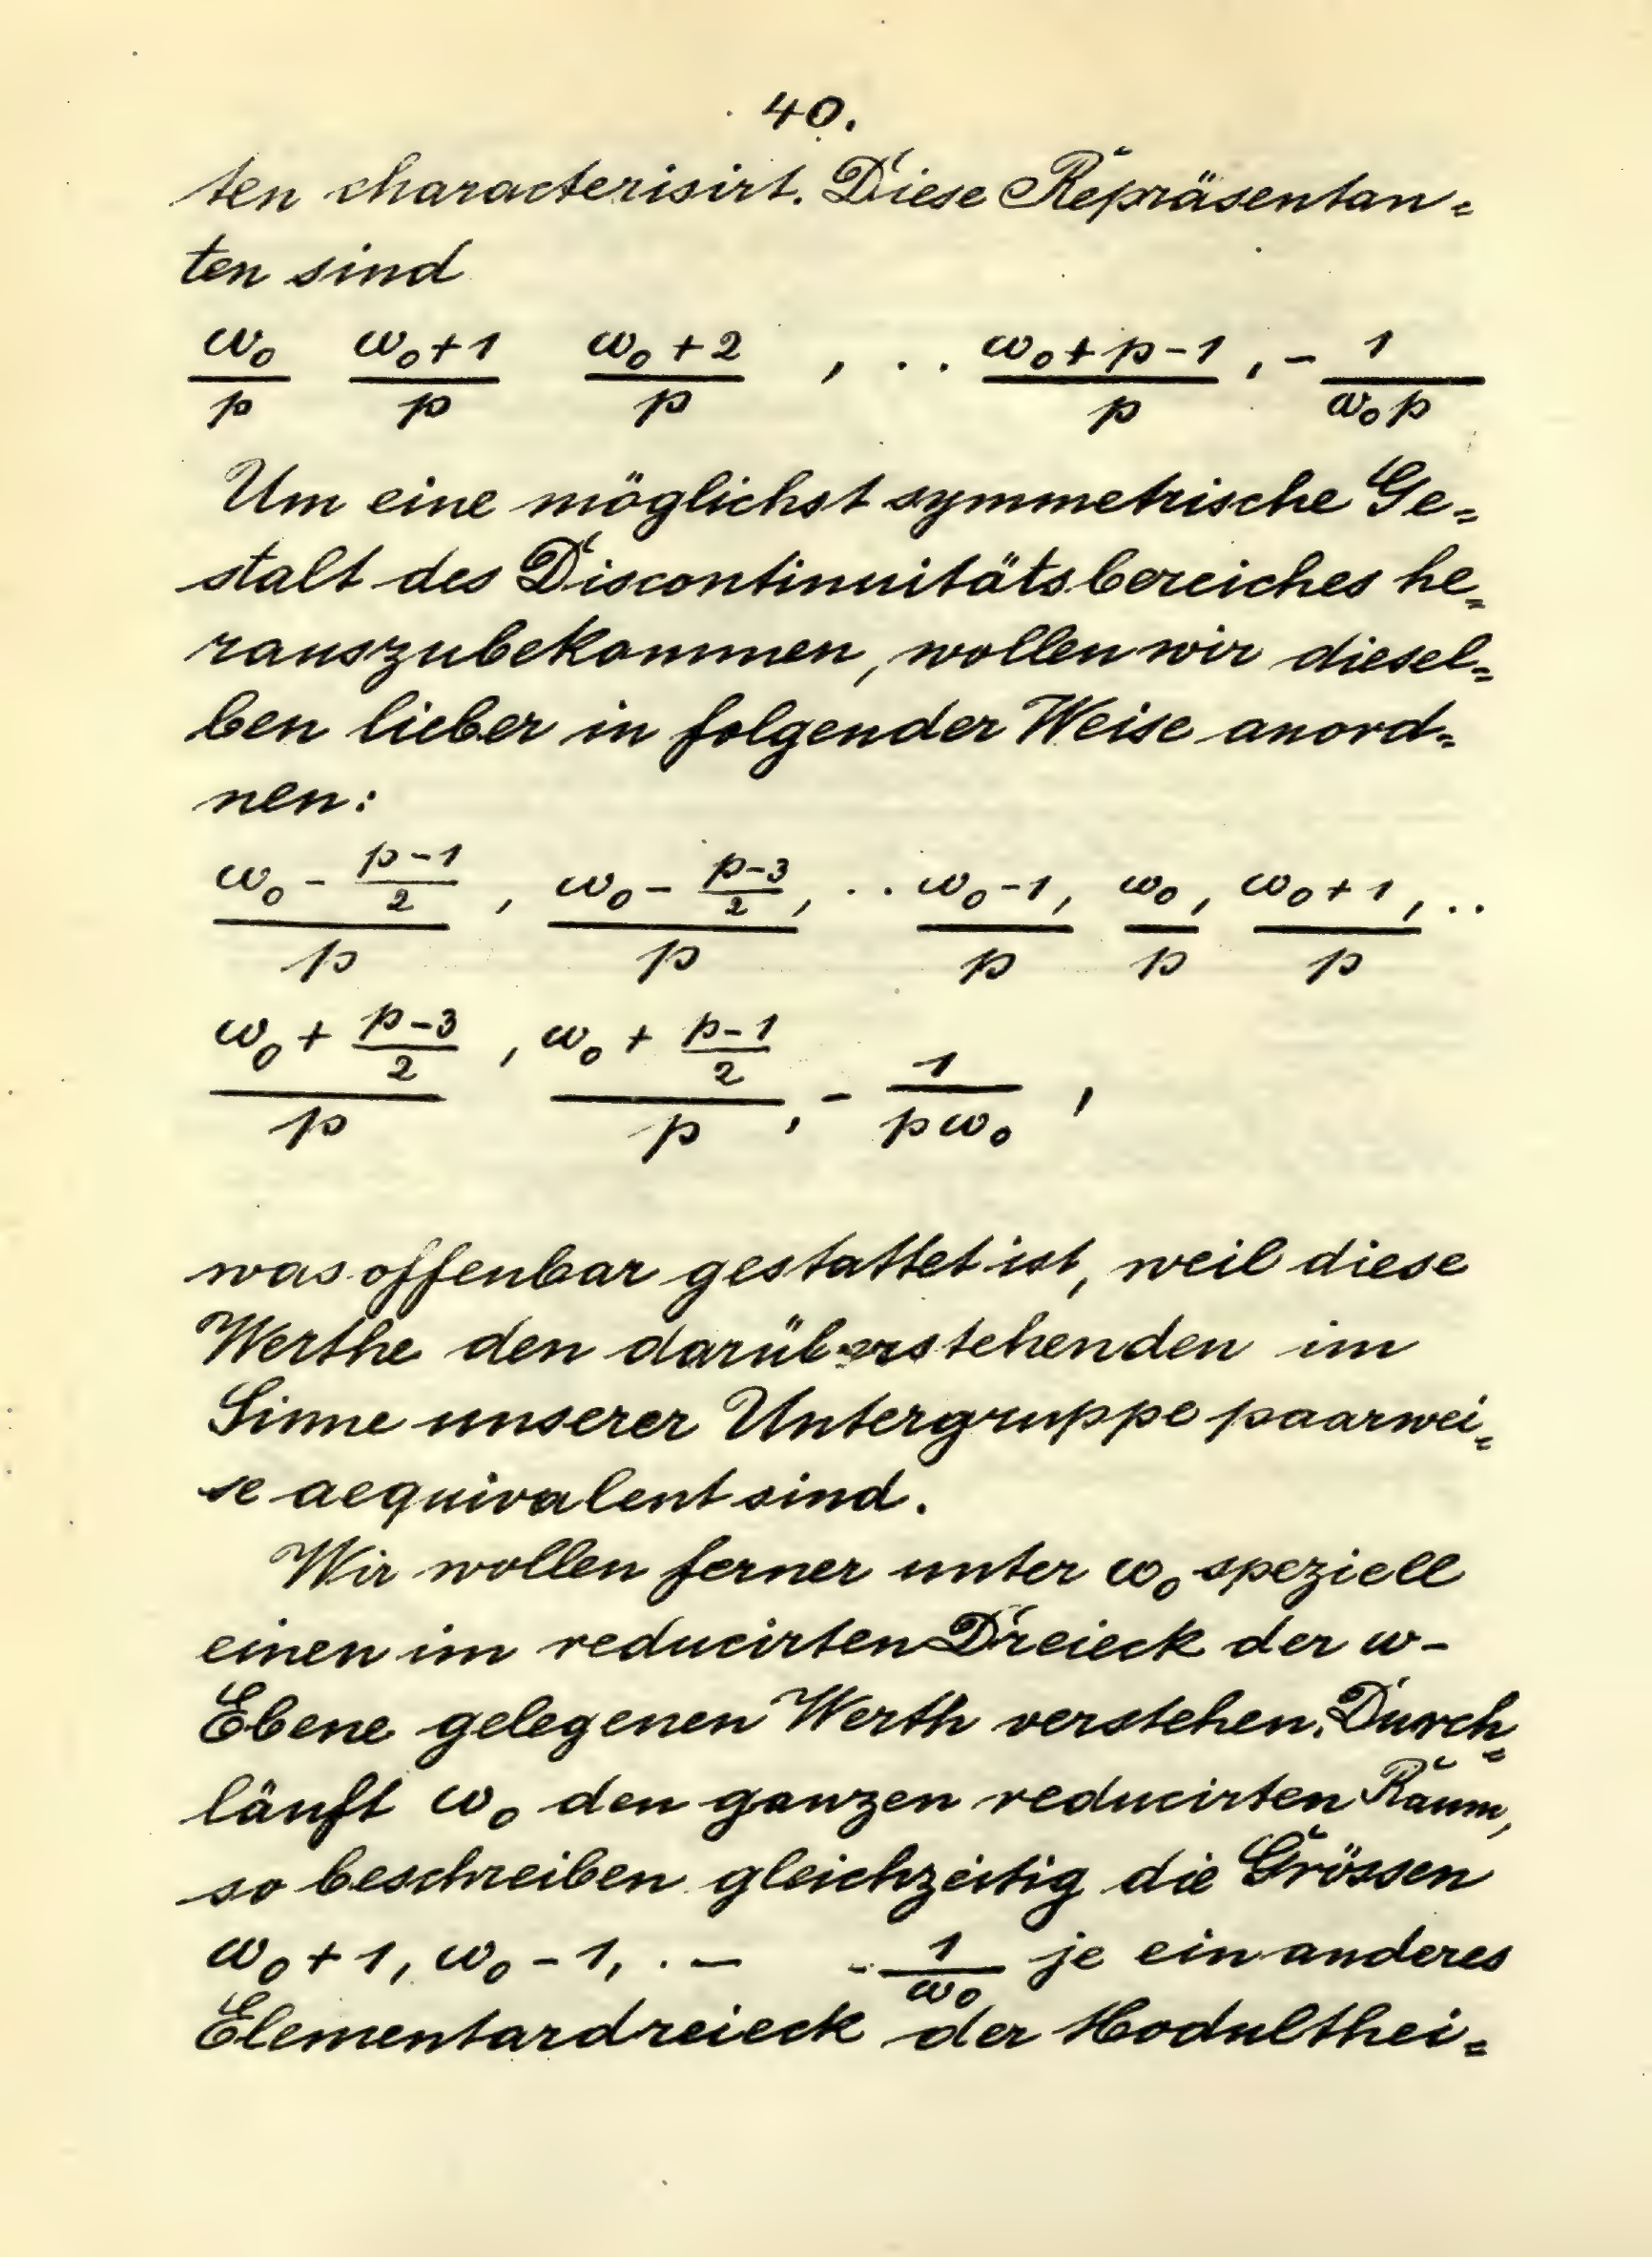 40.
ten characterisirt. Diese Repräsentan=
ten sind
ω₀/p (ω₀+1)/p (ω₀+2)/p , . . (ω₀+p-1)/p , - 1/(ω₀p)
Um eine möglichst symmetrische Ge=
stalt des Discontinuitätsbereiches he=
rauszubekommen, wollen wir diesel=
ben lieber in folgender Weise anord=
nen:
(ω₀ - (p-1)/2)/p , (ω₀ - (p-3)/2)/p , . . (ω₀-1)/p , ω₀/p , (ω₀+1)/p , . .
(ω₀ + (p-3)/2)/p , (ω₀ + (p-1)/2)/p , - 1/(pω₀) ,
was offenbar gestattet ist, weil diese
Werthe den darüberstehenden im
Sinne unserer Untergruppe paarwei=
se aequivalent sind.
Wir wollen ferner unter ω₀ speziell
einen im reducirten Dreieck der ω-
Ebene gelegenen Werth verstehen. Durch=
läuft ω₀ den ganzen reducirten Raum,
so beschreiben gleichzeitig die Grössen
ω₀+1, ω₀-1, . — - 1/ω₀ je ein anderes
Elementardreieck der Modulthei=